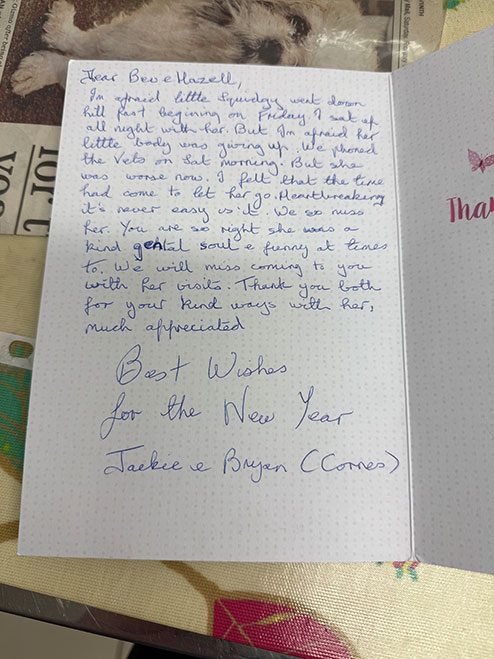 Dear Bev e Hazell,
I'm afraid little Squidgy went down
hill fast begining on Friday. I sat up
all night with her. But I'm afraid her
little body was giving up. We phoned
the Vets on Sat morning. But she
was worse now. I felt that the time
had come to let her go. Heartbreaking
it's never easy is it. We so miss
her. You are so right she was a
kind gental soul e funny at times
to. We will miss coming to you
with her visits. Thank you both
for your kind ways with her,
much appreciated
Best Wishes
for the New Year
Jackie e Bryan (Cornes)
Than